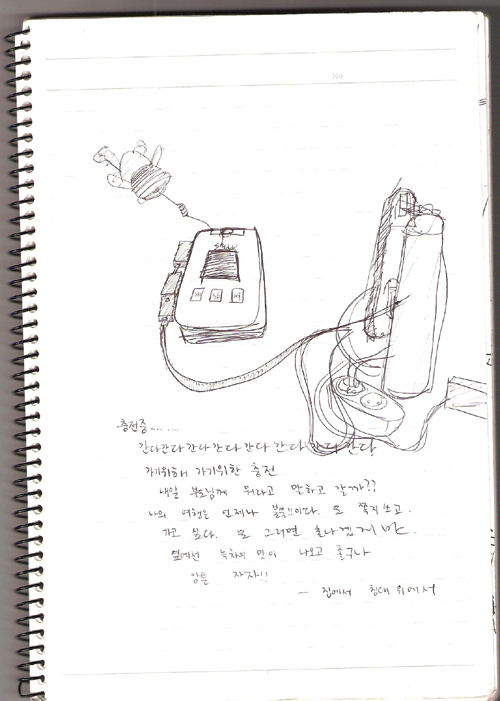 No
충전중........
간다간다 간다 간다 간다 간다 간다 간다
가기위해 가기위한 충전
내일 부모님께 뭐라고 말하고 갈까??
나의 여행은 언제나 이다. 또 쪽지쓰고.
가고 싶다. 또 그러면 혼나겠지 만.
옆에선 녹차의 맛이 나오고 졸구나
암튼 자자!!
— 집에서 침대 위에서